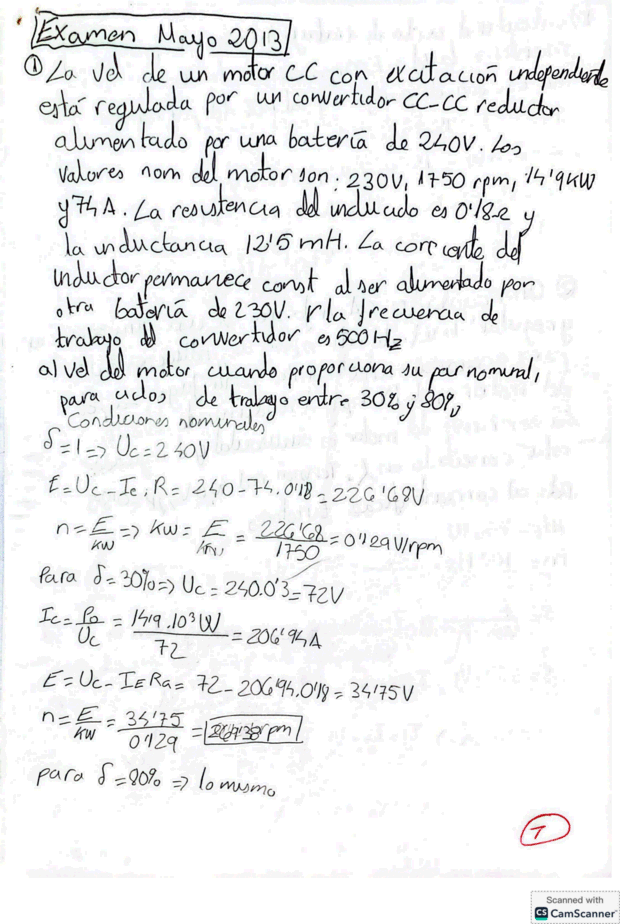 Examen Mayo 2013
① La vel de un motor CC con excitación independiente
está regulada por un convertidor CC-CC reductor
alimentado por una batería de 240V. Los
valores nom del motor son: 230V, 1750 rpm, 14'9KW
y 74A. La resistencia del inducido es 0'18Ω y
la inductancia 12'5 mH. La corriente del
inductor permanece const al ser alimentado por
otra batería de 230V. Y la frecuencia de
trabajo del convertidor es 500Hz
a) Vel del motor cuando proporciona su par nominal,
para ciclos de trabajo entre 30% y 80%
Condiciones nominales
δ=1=> Uc=240V
E=Uc-Ic.R= 240-74.0'18=226'68V
n=E/KW => KW= E/ = 226'68/1750=0'129V/rpm
Para δ=30%=> Uc=240.0'3=72V
Ic=Po/Uc = 14'9.10³W/72 = 206'94A
E=Uc-IERa= 72-206'94.0'18=34'75V
n=E/KW = 34'75/0'129 = rpm
para δ=80% => lo mismo
Scanned with
CS CamScanner